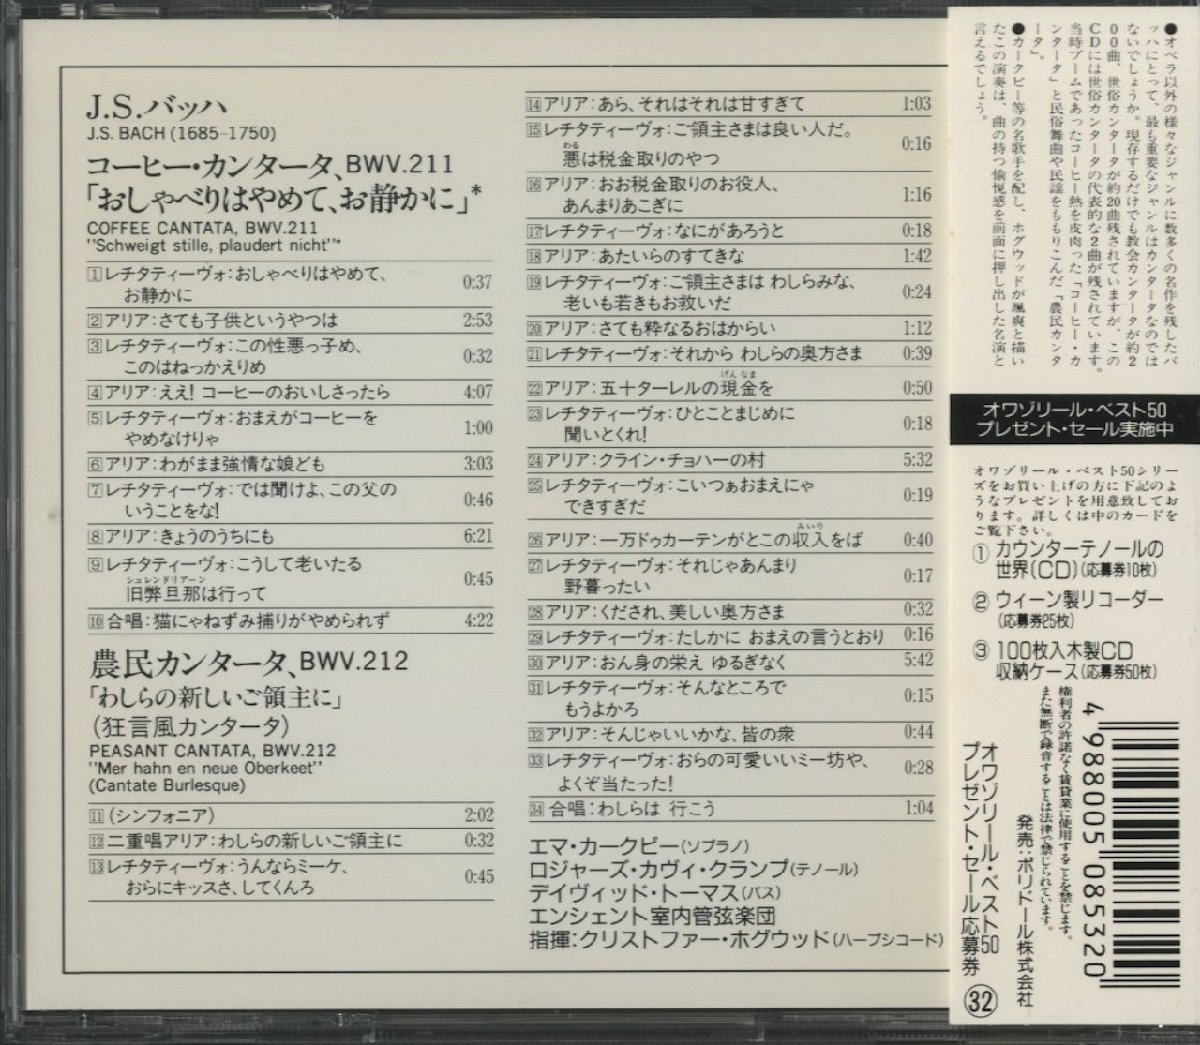 J.S.バッハ
J.S. BACH (1685-1750)
コーヒー・カンタータ、BWV.211
「おしゃべりはやめて、お静かに」*
COFFEE CANTATA, BWV.211
"Schweigt stille, plaudert nicht"*
1 レチタティーヴォ:おしゃべりはやめて、
お静かに 0:37
2 アリア:さても子供というやつは 2:53
3 レチタティーヴォ:この性悪っ子め、
このはねっかえりめ 0:32
4 アリア:ええ! コーヒーのおいしさったら 4:07
5 レチタティーヴォ:おまえがコーヒーを
やめなけりゃ 1:00
6 アリア:わがまま強情な娘ども 3:03
7 レチタティーヴォ:では聞けよ、この父の
いうことをな! 0:46
8 アリア:きょうのうちにも 6:21
9 レチタティーヴォ:こうして老いたる
シュレンドリアーン
旧弊旦那は行って 0:45
10 合唱:猫にゃねずみ捕りがやめられず 4:22
農民カンタータ、BWV.212
「わしらの新しいご領主に」
(狂言風カンタータ)
PEASANT CANTATA, BWV.212
"Mer hahn en neue Oberkeet"
(Cantate Burlesque)
11 (シンフォニア) 2:02
12 二重唱アリア:わしらの新しいご領主に 0:32
13 レチタティーヴォ:うんならミーケ、
おらにキッスさ、してくんろ 0:45
14 アリア:あら、それはそれは甘すぎて 1:03
15 レチタティーヴォ:ご領主さまは良い人だ。
わる
悪は税金取りのやつ 0:16
16 アリア:おお税金取りのお役人、
あんまりあこぎに 1:16
17 レチタティーヴォ:なにがあろうと 0:18
18 アリア:あたいらのすてきな 1:42
19 レチタティーヴォ:ご領主さまは わしらみな、
老いも若きもお救いだ 0:24
20 アリア:さても粋なるおはからい 1:12
21 レチタティーヴォ:それから わしらの奥方さま 0:39
げんなま
22 アリア:五十ターレルの現金を 0:50
23 レチタティーヴォ:ひとことまじめに
聞いとくれ! 0:18
24 アリア:クライン・チョハーの村 5:32
25 レチタティーヴォ:こいつぁおまえにゃ
できすぎだ 0:19
みいり
26 アリア:一万ドゥカーテンがとこの収入をば 0:40
27 レチタティーヴォ:それじゃあんまり
野暮ったい 0:17
28 アリア:くだされ、美しい奥方さま 0:32
29 レチタティーヴォ:たしかに おまえの言うとおり 0:16
30 アリア:おん身の栄え ゆるぎなく 5:42
31 レチタティーヴォ:そんなところで
もうよかろ 0:15
32 アリア:そんじゃいいかな、皆の衆 0:44
33 レチタティーヴォ:おらの可愛いいミー坊や、
よくぞ当たった! 0:28
34 合唱:わしらは 行こう 1:04
エマ・カークビー(ソプラノ)
ロジャーズ・カヴィ・クランプ(テノール)
デイヴィッド・トーマス(バス)
エンシェント室内管弦楽団
指揮:クリストファー・ホグウッド(ハープシコード)
●オペラ以外の様々なジャンルに数多くの名作を残したバ
ッハにとって、最も重要なジャンルはカンタータなのでは
ないでしょうか。現存するだけでも教会カンタータが約2
00曲、世俗カンタータが約20曲残されていますが、この
CDには世俗カンタータの代表的な2曲が残されています。
当時ブームであったコーヒー熱を皮肉った「コーヒー・カ
ンタータ」と民俗舞曲や民謡をもりこんだ「農民カンタ
ータ」。
●カークビー等の名歌手を配し、ホグウッドが颯爽と描い
たこの演奏は、曲の持つ愉悦感を前面に押し出した名演と
言えるでしょう。
オワゾリール・ベスト50
プレゼント・セール実施中
オワゾリール・ベスト50シリー
ズをお買い上げの方に下記のよ
うなプレゼントを用意致してお
ります。詳しくは中のカードを
ご覧下さい。
① カウンターテノールの
世界(CD)(応募券10枚)
② ウィーン製リコーダー
(応募券25枚)
③ 100枚入木製CD
収納ケース(応募券50枚)
権利者の許諾なく賃貸業に使用することを禁じます。
また無断で録音することは法律で禁じられています。
発売:ポリドール株式会社
オワゾリール・ベスト50
プレゼント・セール応募券
32
4 988005 085320